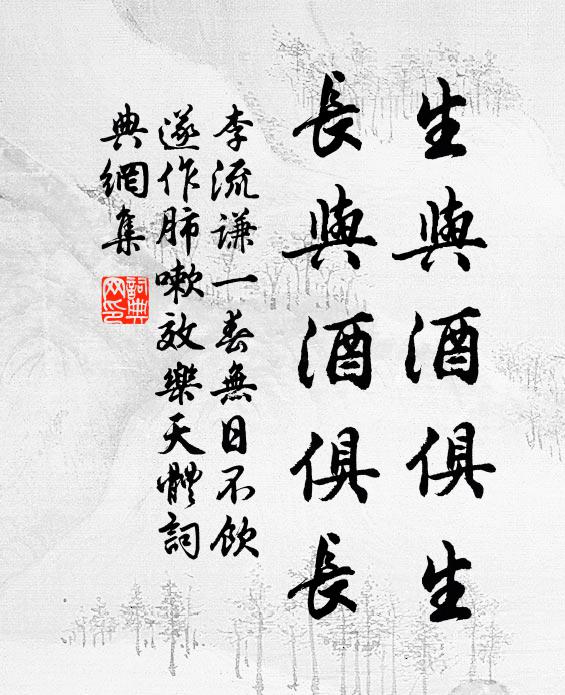 生與酒俱生
長與酒俱長
李流谦一春無日不飲
遂作肺嗽效樂天體詞
典網集
詞典
网印